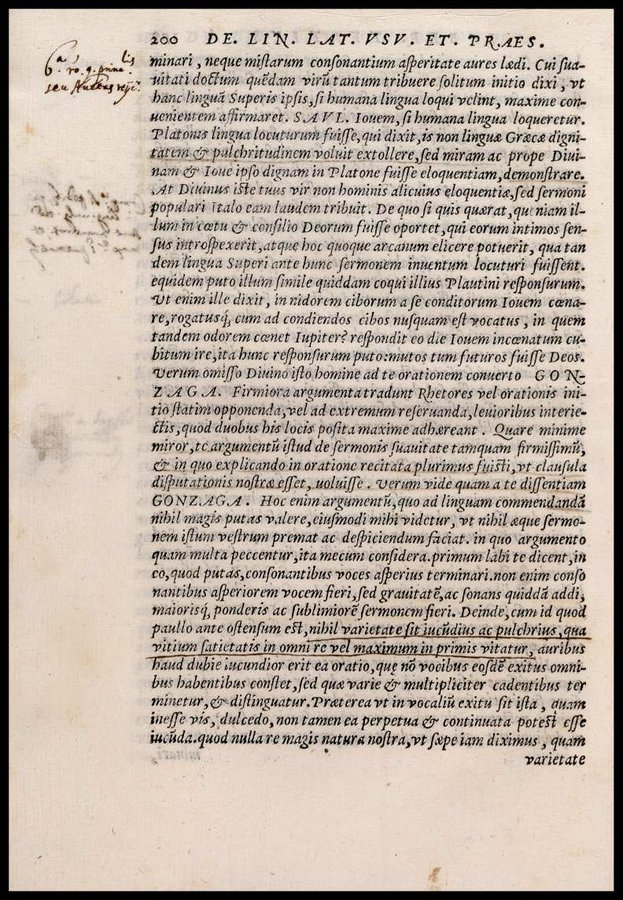 200 DE. LIN. LAT. VSV. ET. PRAES.
minari, neque mistarum consonantium asperitate aures lædi. Cui sua-
uitati doctum quẽdam virũ tantum tribuere solitum initio dixi, vt
hanc linguã Superis ipsis, si humana lingua loqui velint, maxime con-
uenientem affirmaret. SAVL. Iouem, si humana lingua loqueretur.
Platonis lingua locuturum fuisse, qui dixit, is non linguæ Græcæ digni-
tatem & pulchritudinem voluit extollere, sed miram ac prope Diui-
nam & Ioue ipso dignam in Platone fuisse eloquentiam, demonstrare.
At Diuinus iste tuus vir non hominis alicuius eloquentiæ, sed sermoni
populari Italo eam laudem tribuit. De quo si quis quærat, quoniam il-
lum in cœtu & consilio Deorum fuisse oportet, qui eorum intimos sen-
sus introspexerit, atque hoc quoque arcanum elicere potuerit, qua tan
dem lingua Superi ante hunc sermonem inuentum locuturi fuissent.
equidem puto illum simile quiddam coqui illius Plautini responsurum.
Vt enim ille dixit, in nidorem ciborum a se conditorum Iouem cœna-
re, rogatusq́, cum ad condiendos cibos nusquam est vocatus, in quem
tandem odorem cœnet Iupiter? respondit eo die Iouem incœnatum cu-
bitum ire, ita hunc responsurum puto: mutos tum futuros fuisse Deos.
Verum omisso Diuino isto homine ad te orationem conuerto GON-
ZAGA. Firmiora argumenta tradunt Rhetores vel orationis ini-
tio statim opponenda, vel ad extremum reseruanda, leuioribus interie-
ctis, quod duobus his locis posita maxime adhæreant. Quare minime
miror, te argumentũ istud de sermonis suauitate tamquam firmissimũ,
& in quo explicando in oratione recitata plurimus fuisti, vt clausula
disputationis nostræ esset, voluisse. Verum vide quam a te dissentiam
GONZAGA. Hoc enim argumentũ, quo ad linguam commendandã
nihil magis putas valere, eiusmodi mihi videtur, vt nihil æque sermo-
nem istum vestrum premat ac despiciendum faciat. in quo argumento
quam multa peccentur, ita mecum considera. primum labi te dicent, in
eo, quod putas, consonantibus voces asperius terminari. non enim conso
nantibus asperiorem vocem fieri, sed grauitatẽ, ac sonans quiddã addi,
maiorisq́, ponderis ac sublimiorẽ sermonem fieri. Deinde, cum id quod
paullo ante ostensum est, nihil varietate sit iucũdius ac pulchrius, qua
vitium satietatis in omni re vel maximum in primis vitatur, auribus
haud dubie iucundior erit ea oratio, que nõ vocibus eosdẽ exitus omni-
bus habentibus constet, sed quæ varie & multipliciter cadentibus ter
minetur, & distinguatur. Præterea vt in vocaliũ exitu sit ista, quam
inesse vis, dulcedo, non tamen ea perpetua & continuata potest esse
iucũda. quod nulla re magis natura nostra, vt sæpe iam diximus, quam
varietate